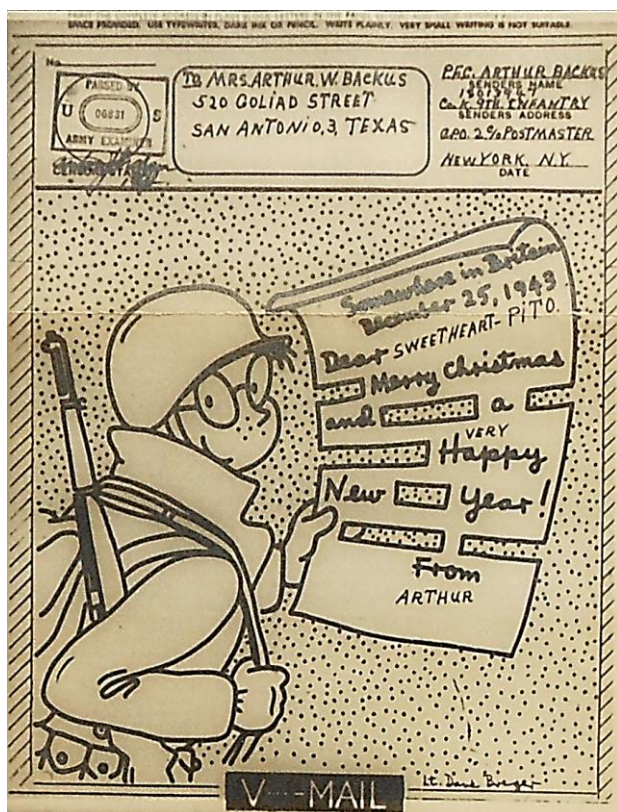 SPACE PROVIDED. USE TYPEWRITER, DARK INK OR PENCIL. WRITE PLAINLY. VERY SMALL WRITING IS NOT SUITABLE.
No.
PASSED BY
U 06831 S
ARMY EXAMINER
To MRS. ARTHUR. W. BACKUS
520 GOLIAD STREET
SAN ANTONIO, 3, TEXAS
P.F.C. ARTHUR BACKUS
SENDERS NAME
Co. K. 9TH. INFANTRY
SENDERS ADDRESS
A.P.O. 2 c/o POSTMASTER
NEW YORK, N.Y.
DATE
Somewhere in Britain
December 25, 1943
Dear SWEETHEART - PITO.
Merry Christmas
and a
VERY
Happy
New Year!
From
ARTHUR
Lt. Dave Breger
V---MAIL